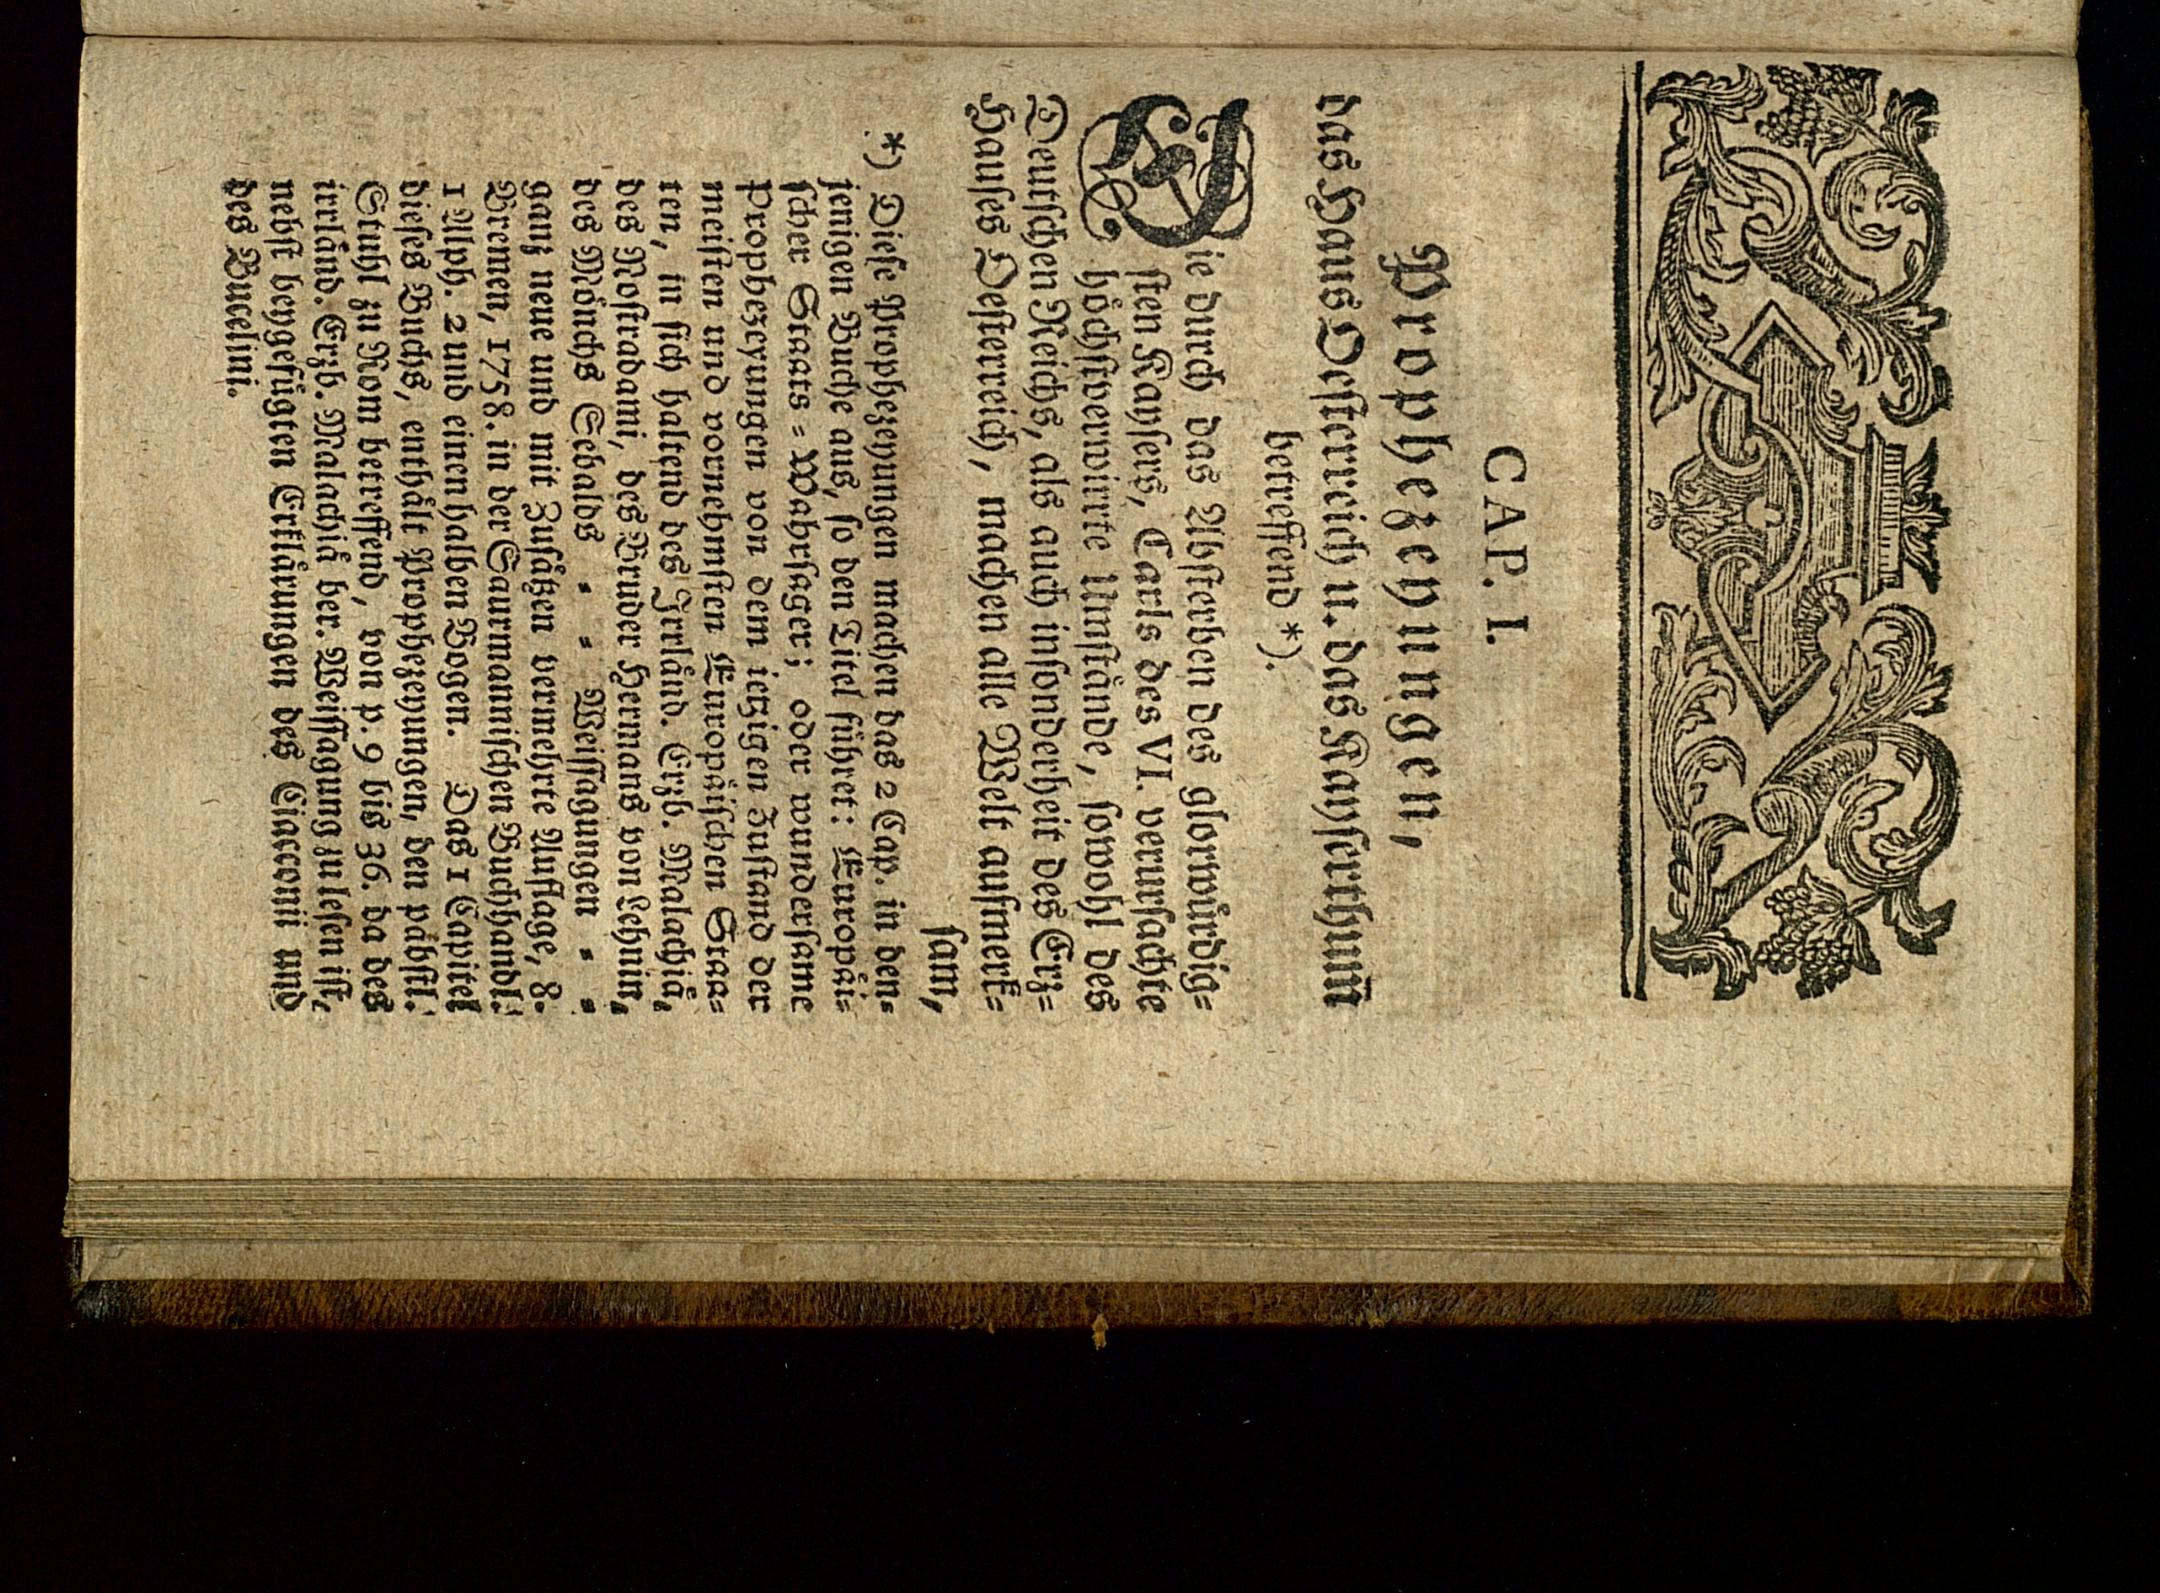 CAP. I.
Prophezeyungen,
das Haus Oesterreich u. das Kayserthum̃
betreffend *).
Die durch das Absterben des glorwürdig-
sten Kaysers, Carls des VI. verursachte
höchstverwirrte Umstände, sowohl des
Deutschen Reichs, als auch insonderheit des Erz-
Hauses Oesterreich, machen alle Welt aufmerk-
sam,
*) Diese Prophezeyungen machen das 2 Cap. in den-
jenigen Buche aus, so den Titel führet: Europäi-
scher Staats-Wahrsager; oder wundersame
Prophezeyungen von dem ietzigen Zustand der
meisten und vornehmsten Europäischen Staa-
ten, in sich haltend des Irrländ. Erzb. Malachiä,
des Nostradami, des Bruder Hermans von Lehnin,
des Mönchs Sebalds - - - Weissagungen - -
ganz neue und mit Zusätzen vermehrte Auflage, 8.
Bremen, 1758. in der Saurmannischen Buchhandl.
1 Alph. 2 und einen halben Bogen. Das 1 Capitel
dieses Buchs, enthält Prophezeyungen, den päbstl.
Stuhl zu Rom betreffend, von p. 9 bis 36. da des
irrländ. Erzb. Malachiä ber. Weissagung zu lesen ist,
nebst beygefügten Erklärungen des Ciacconii und
des Bucelini.